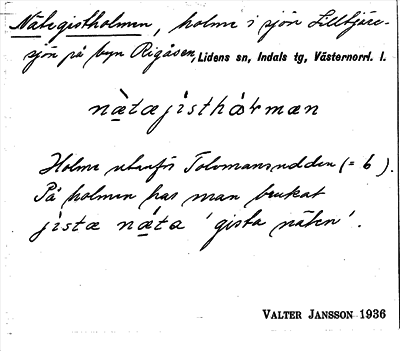 Nätegistholmen, holme i sjön Lilltjäre-
sjön på byn Rigåsen, Lidens sn, Indals tg, Västernorrl. l.
nætajisthåɫman
Holme utanför Tolvmansudden (= 6).
På holmen har man brukat
jistæ næta 'gista näten'.
VALTER JANSSON 1936